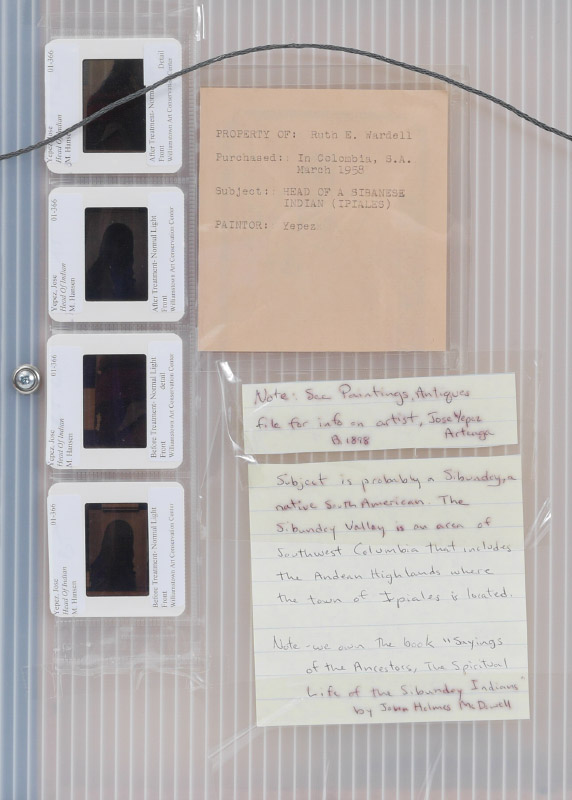 01-366
Yepez, Jose
Head Of Indian
M. Hansen
After Treatment- Normal
Detail
Front
Williamstown Art Conservation Center
01-366
Yepez, Jose
Head Of Indian
M. Hansen
After Treatment- Normal Light
Front
Williamstown Art Conservation Center
01-366
Yepez, Jose
Head Of Indian
M. Hansen
Before Treatment- Normal Light
detail
Front
Williamstown Art Conservation Center
01-366
Yepez, Jose
Head Of Indian
M. Hansen
Before Treatment- Normal Light
Front
Williamstown Art Conservation Center
PROPERTY OF: Ruth E. Wardell
Purchased: In Colombia, S.A.
March 1958
Subject: HEAD OF A SIBANESE
INDIAN (IPIALES)
PAINTOR: Yepez
Note: See Paintings, Antiques
file for info on artist, Jose Yepez
B. 1898 Arteaga
Subject is probably a Sibundry, a
native South American. The
Sibundry Valley is an area of
Southwest Columbia that includes
the Andean Highlands where
the town of Ipiales is located.
Note - we own the book "Sayings
of the Ancestors, The Spiritual
Life of the Sibundry Indians"
by John Holmes McDowell